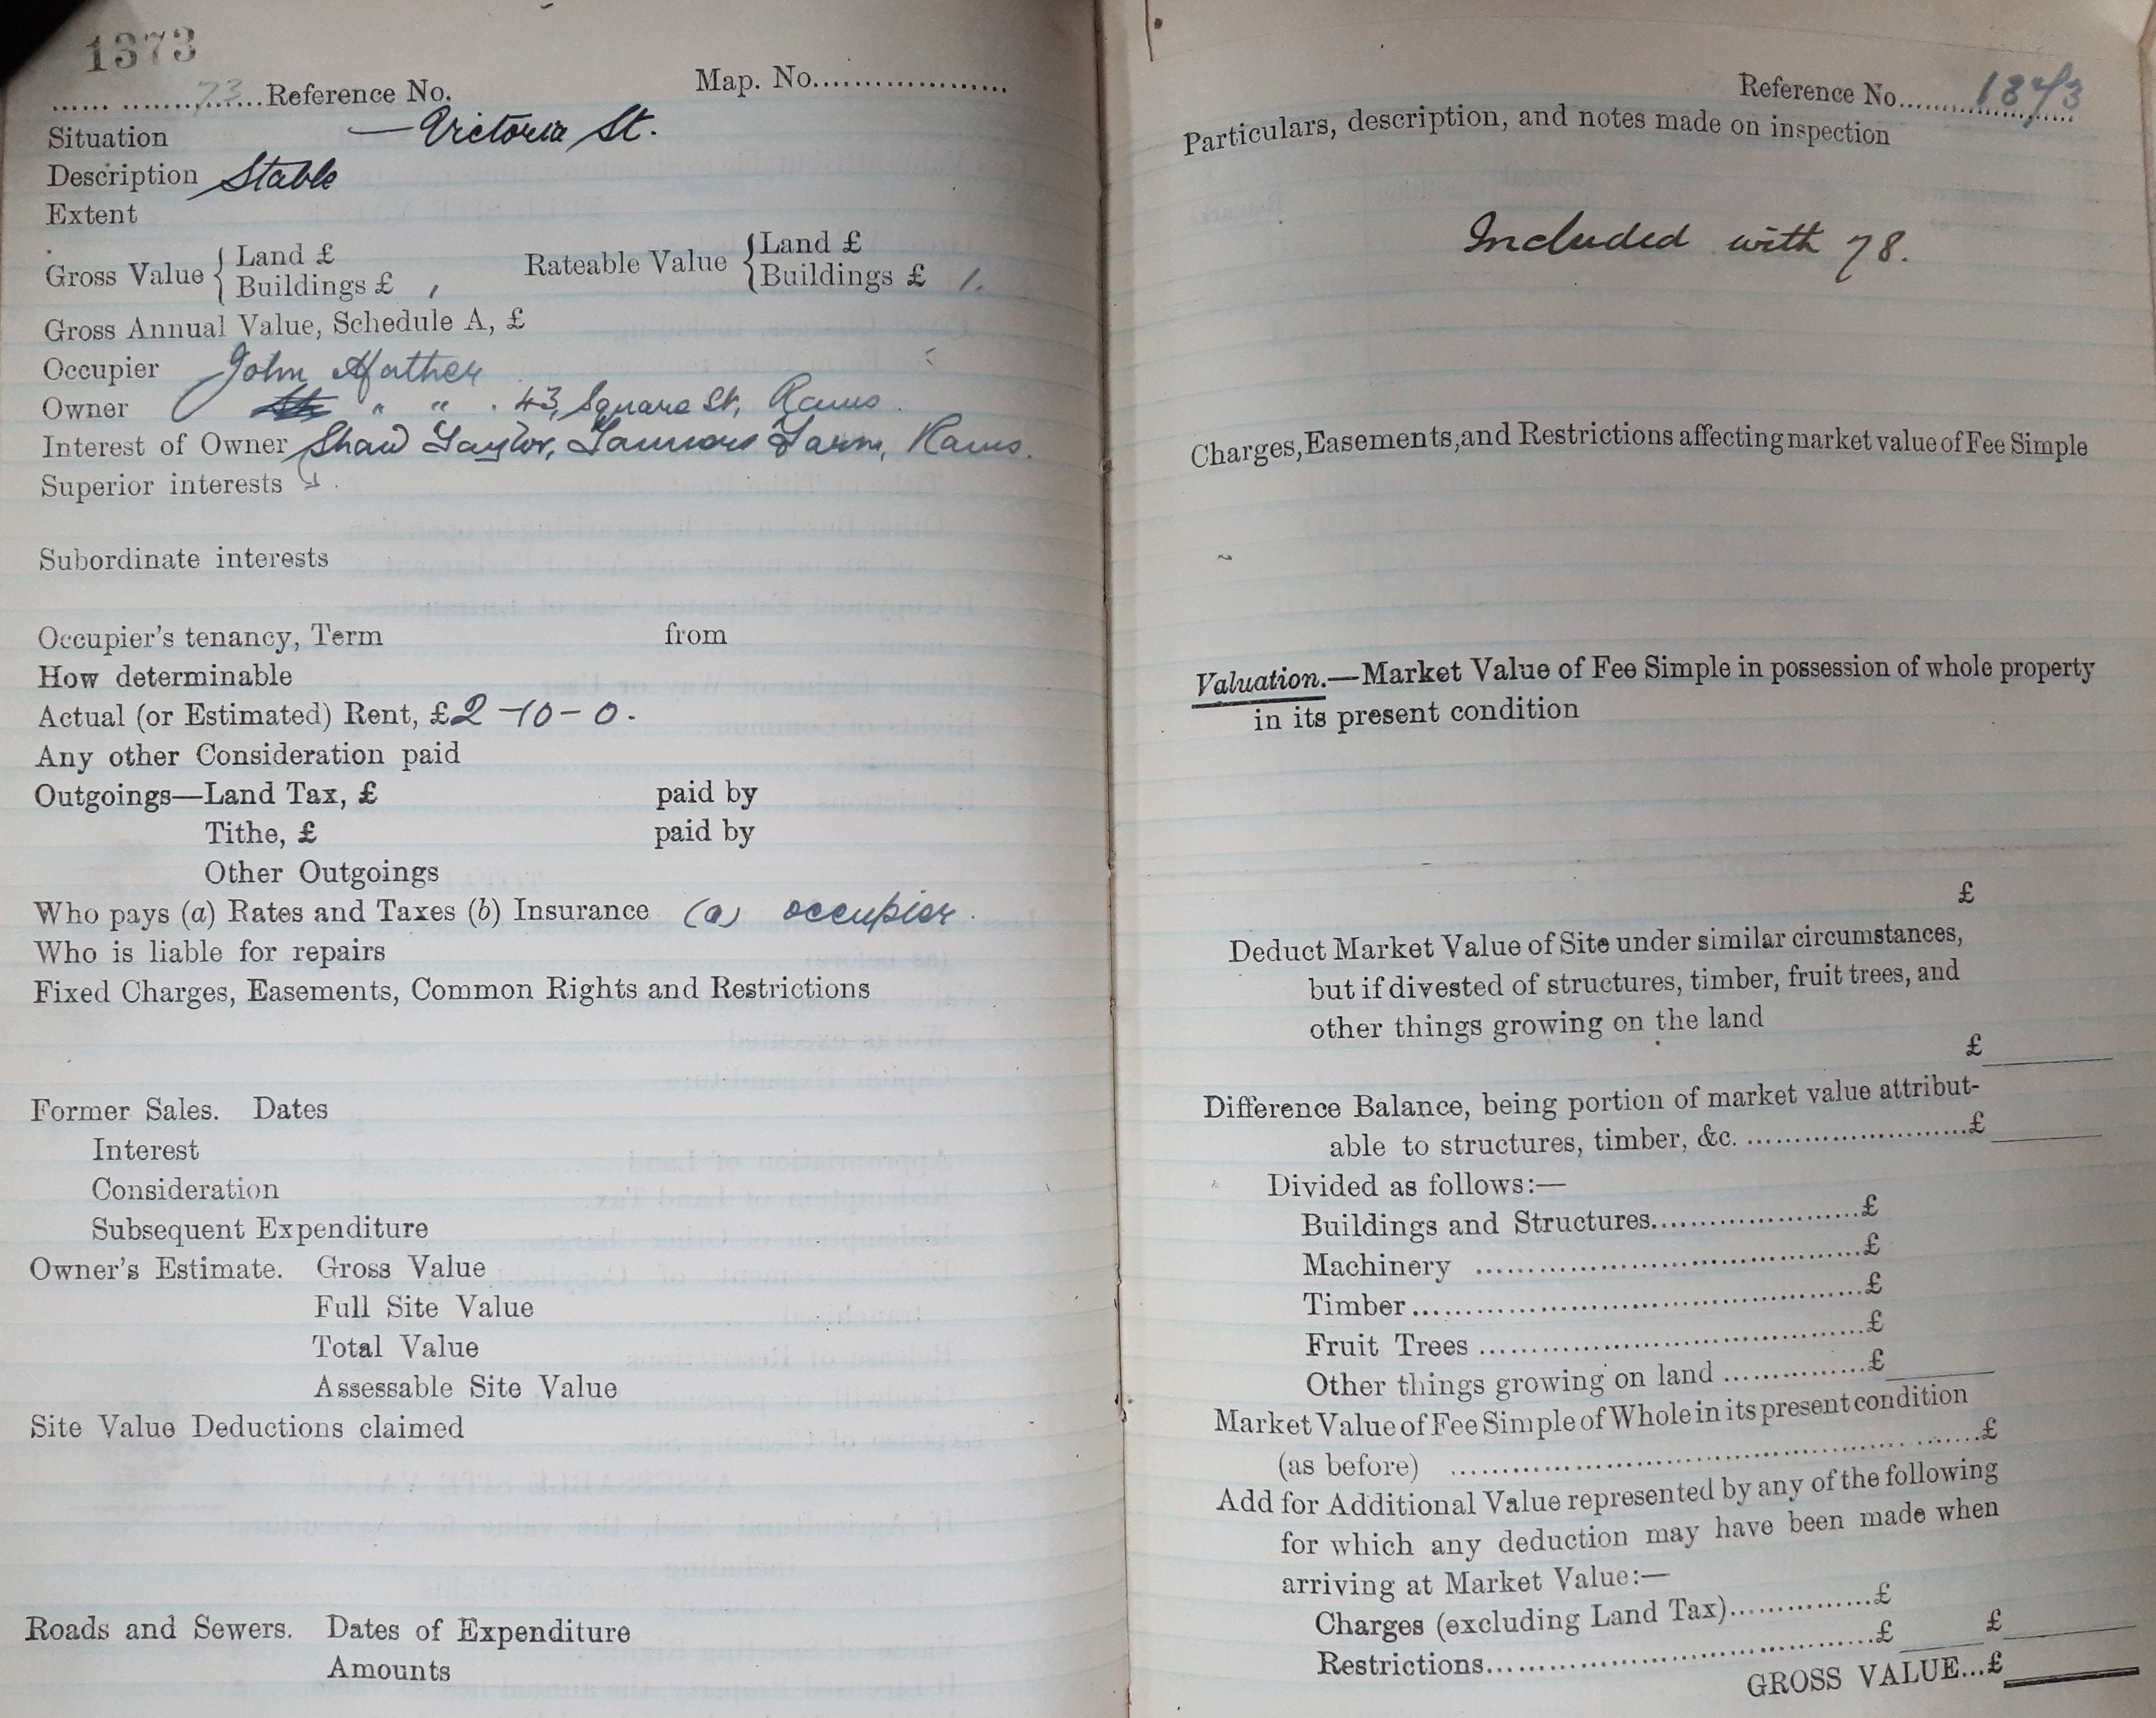 1373
...... ..........73....Reference No. Map. No...................
Situation — Victoria St.
Description Stable
Extent
Gross Value { Land £ Rateable Value { Land £
Buildings £ Buildings £ 1.
Gross Annual Value, Schedule A, £
Occupier John
Owner " " . 43, Square St, Rams.
Interest of Owner Shaw Taylor, Farm, Rams.
Superior interests
Subordinate interests
Occupier's tenancy, Term from
How determinable
Actual (or Estimated) Rent, £2-10-0.
Any other Consideration paid
Outgoings—Land Tax, £ paid by
Tithe, £ paid by
Other Outgoings
Who pays (a) Rates and Taxes (b) Insurance (a) occupier.
Who is liable for repairs
Fixed Charges, Easements, Common Rights and Restrictions
Former Sales. Dates
Interest
Consideration
Subsequent Expenditure
Owner's Estimate. Gross Value
Full Site Value
Total Value
Assessable Site Value
Site Value Deductions claimed
Roads and Sewers. Dates of Expenditure
Amounts
Reference No....................
Particulars, description, and notes made on inspection
Included with 78.
Charges, Easements, and Restrictions affecting market value of Fee Simple
Valuation.—Market Value of Fee Simple in possession of whole property
in its present condition
£
Deduct Market Value of Site under similar circumstances,
but if divested of structures, timber, fruit trees, and
other things growing on the land
£
Difference Balance, being portion of market value attribut-
able to structures, timber, &c. .........................£
Divided as follows:—
Buildings and Structures.......................£
Machinery .........................................£
Timber................................................£
Fruit Trees .........................................£
Other things growing on land ................£
Market Value of Fee Simple of Whole in its present condition
(as before) ......................................................£
Add for Additional Value represented by any of the following
for which any deduction may have been made when
arriving at Market Value:—
Charges (excluding Land Tax)................£
Restrictions..........................................£ £
GROSS VALUE...£